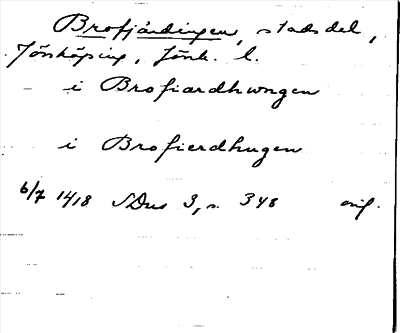 Brofjärdingen, stadsdel,
Jönköping, Jönk. l.
i Brofiardhwngen
i Brofierdhugen
6/7 1418 SDns 3, s. 348 orig.